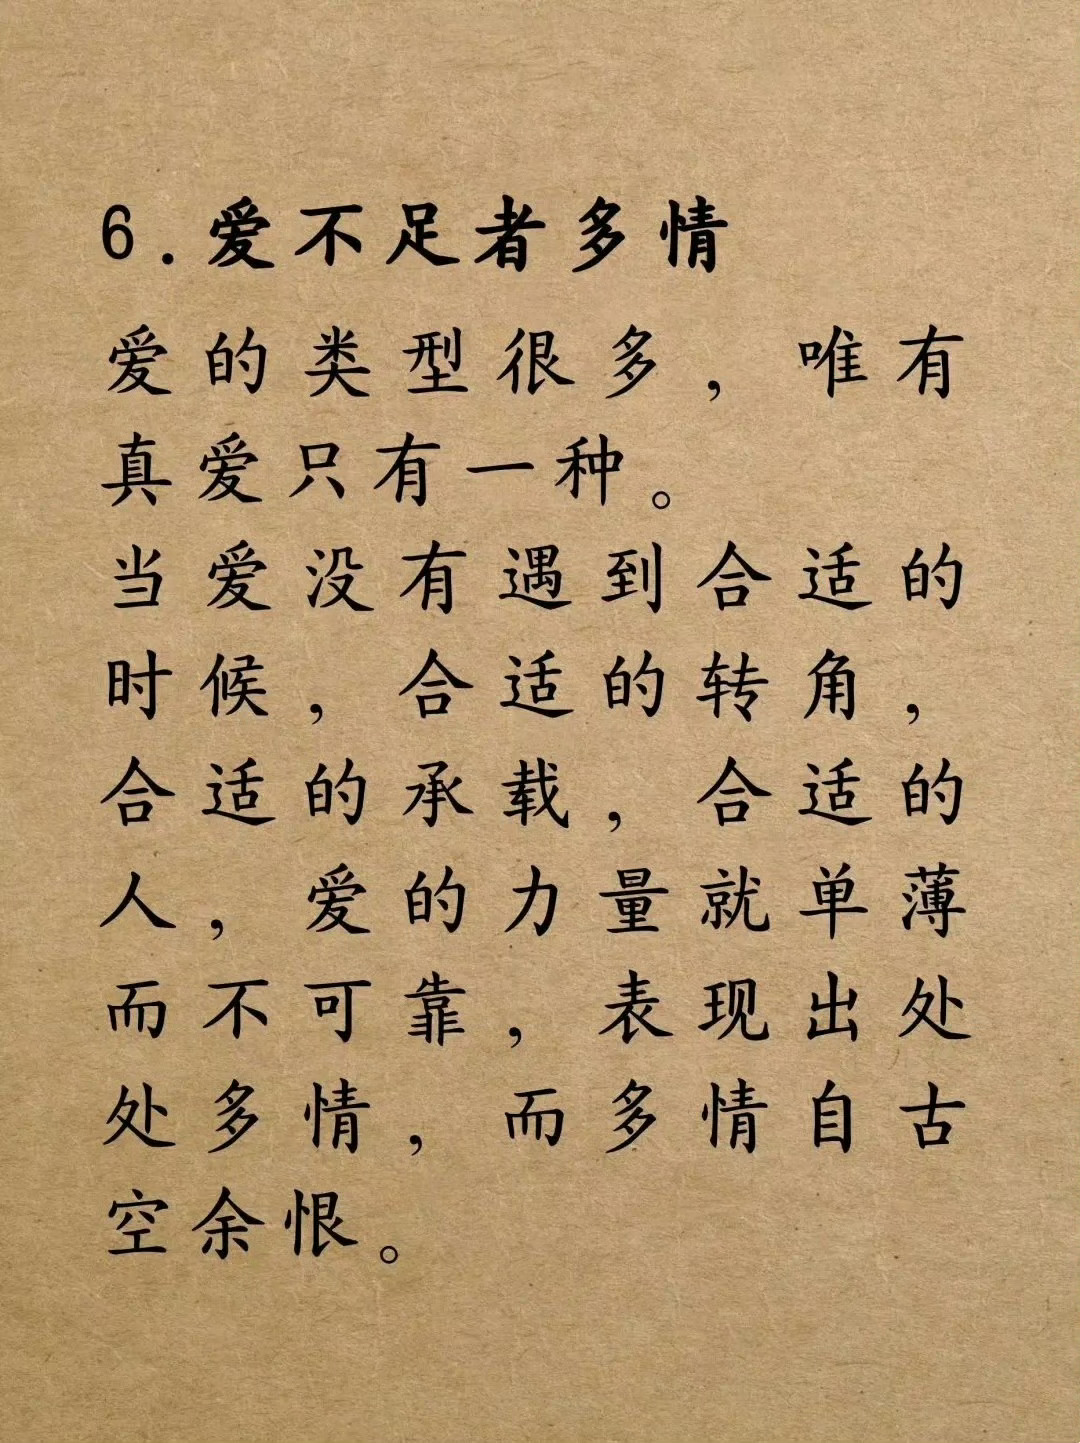 6.爱不足者多情
爱的类型很多，唯有
真爱只有一种。
当爱没有遇到合适的
时候，合适的转角，
合适的承载，合适的
人，爱的力量就单薄
而不可靠，表现出处
处多情，而多情自古
空余恨。